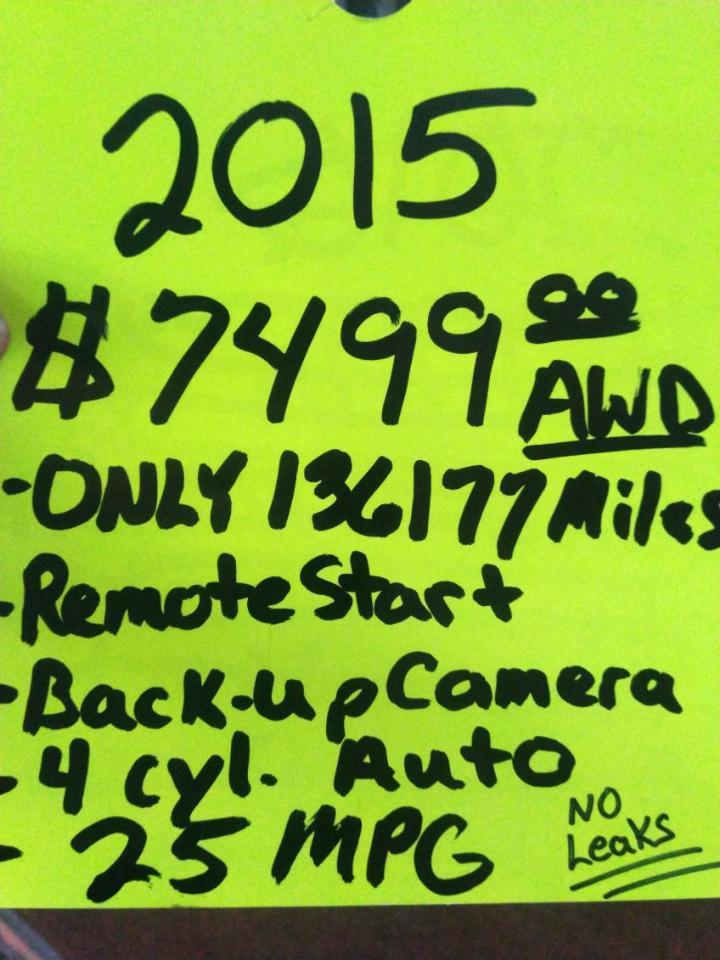 2015
$7499 00
AWD
-ONLY 136177 Miles
-Remote Start
-Back-up Camera
-4 cyl. Auto
-25 MPG
NO
Leaks